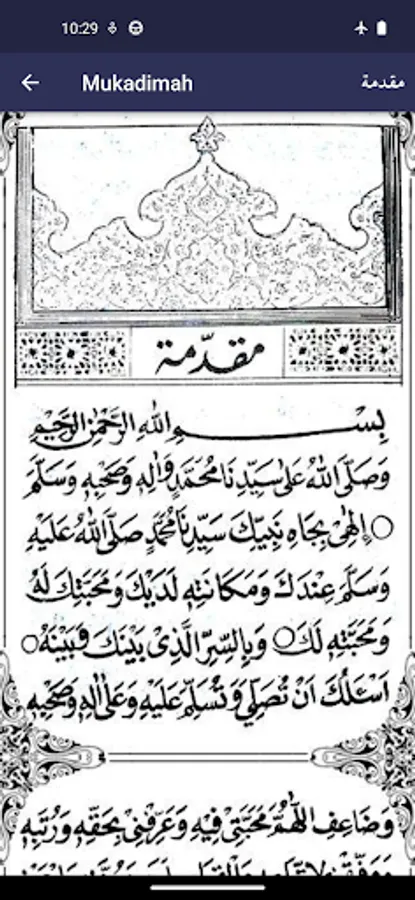 10:29
Mukadimah
مقدمة
مقدّمة
بِسْــــــمِ اللّٰهِ الرَّحْمٰنِ الرَّحِيْمِ
وَصَلَّى اللّٰهُ عَلٰى سَيِّدِنَا مُحَمَّدٍ وَاٰلِهٖ وَصَحْبِهٖ وَسَلَّمَ
○ اِلٰهِيْ بِجَاهِ نَبِيِّكَ سَيِّدِنَا مُحَمَّدٍ صَلَّى اللّٰهُ عَلَيْهِ
وَسَلَّمَ عِنْدَكَ وَمَكَانَتِهٖ لَدَيْكَ وَمَحَبَّتِكَ لَهُ
وَمَحَبَّتِهٖ لَكَ ○ وَبِالسِّرِّ الَّذِيْ بَيْنَكَ وَبَيْنَهُ ○
اَسْاَلُكَ اَنْ تُصَلِّيَ وَتُسَلِّمَ عَلَيْهِ وَعَلٰى اٰلِهٖ وَصَحْبِهٖ
وَضَاعِفِ اللّٰهُمَّ مَحَبَّتِيْ فِيْهِ وَعَرِّفْنِيْ بِحَقِّهٖ وَرُتَبِهٖ